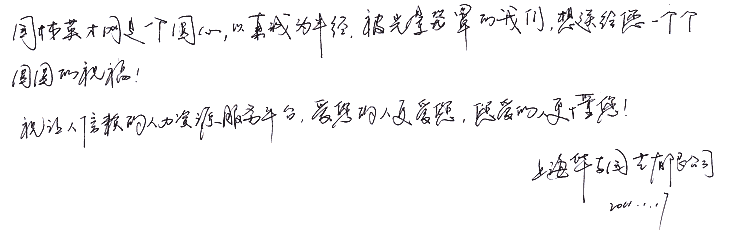 同林英才网是一个圆心，以真诚为半径，被光晕笼罩的我们，想送给您一个个
圆圆的祝福！
祝让人信赖的人力资源服务平台，爱您的人更爱您，您爱的人更懂您！
上海华 园艺有限公司